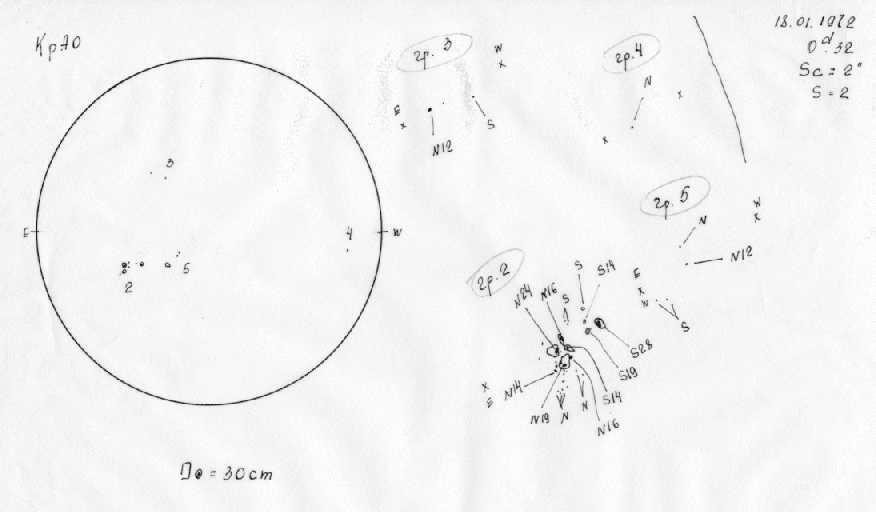 18.01.1972
0ᵈ.32
Sc = 2"
S = 2
гр. 3
W
x
E
x
N12
S
гр. 4
N
x
x
3
E
W
4
5
2
гр. 5
W
x
N
N12
E
x
N
S
гр. 2
N24
N16
S
S
S14
S28
S19
S14
N16
N
N
N19
N14
x
E
D⊙ = 30cm